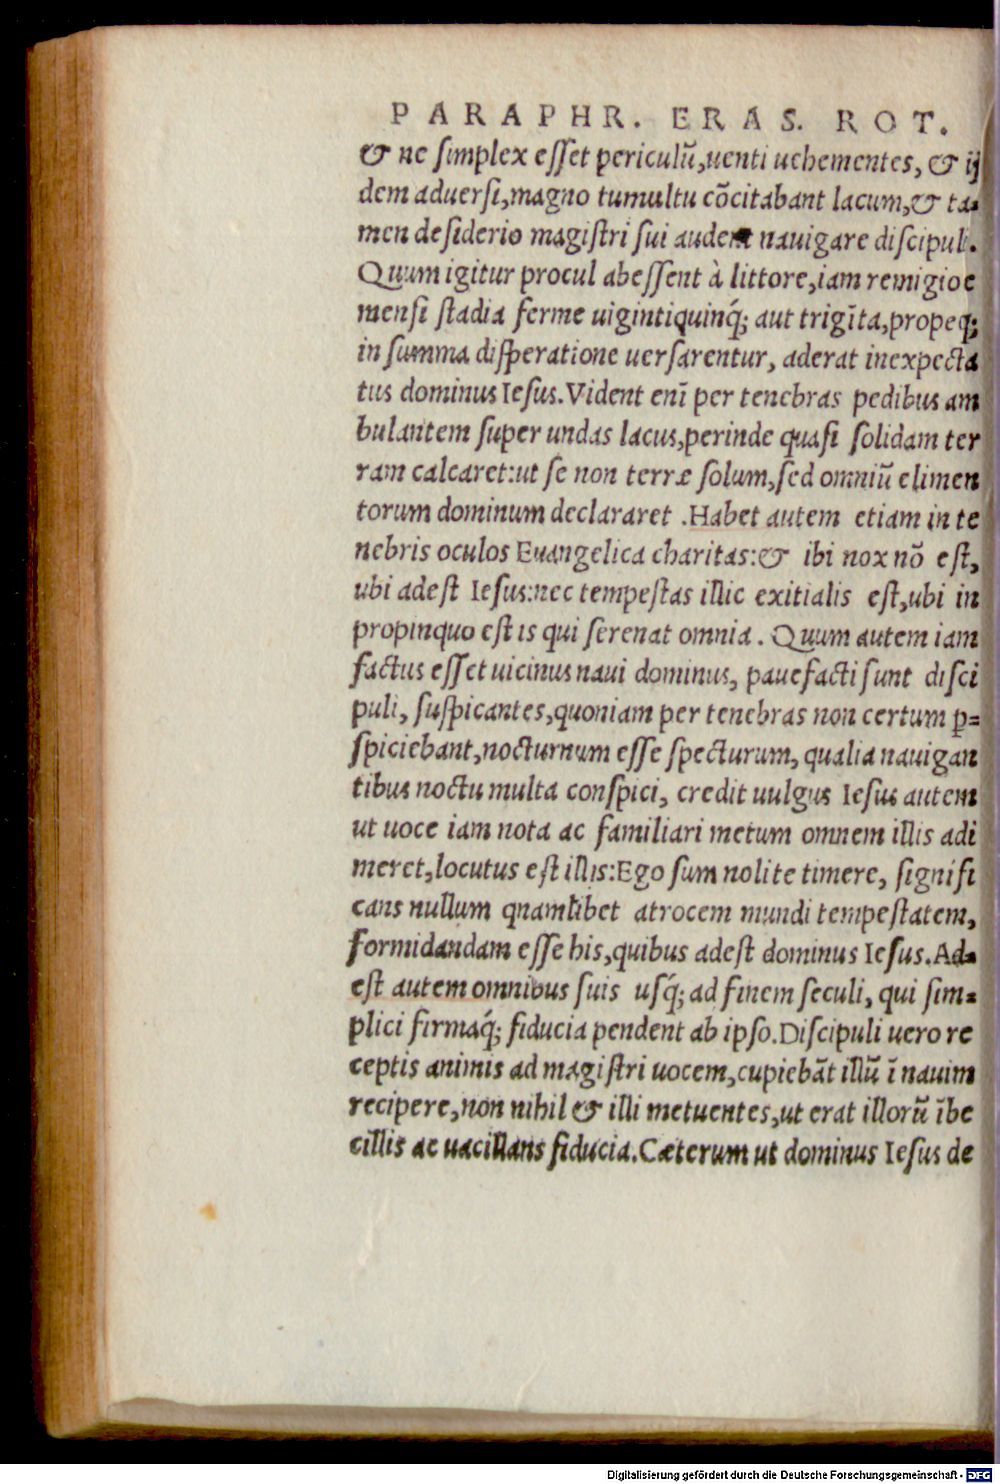 PARAPHR. ERAS. ROT.
& ne simplex esset periculũ,uenti uehementes, & ij
dem aduersi,magno tumultu cõcitabant lacum,& ta-
men desiderio magistri sui audent nauigare discipuli.
Quum igitur procul abessent à littore,iam remigio e
mensi stadia ferme uigintiquinq́; aut trigĩta,propeq;
in summa disperatione uersarentur, aderat inexpecta
tus dominus Iesus.Vident enĩ per tenebras pedibus am
bulantem super undas lacus,perinde quasi solidam ter
ram calcaret:ut se non terræ solum,sed omniũ elimen
torum dominum declararet .Habet autem etiam in te
nebris oculos Euangelica charitas:& ibi nox nõ est,
ubi adest Iesus:nec tempestas illic exitialis est,ubi in
propinquo est is qui serenat omnia. Quum autem iam
factus esset uicinus naui dominus, pauefacti sunt disci
puli, suspicantes,quoniam per tenebras non certum ꝑ=
spiciebant,nocturnum esse specturum, qualia nauigan
tibus noctu multa conspici, credit uulgus Iesus autem
ut uoce iam nota ac familiari metum omnem illis adi
meret,locutus est illis:Ego sum nolite timere, signifi
cans nullum qnamlibet atrocem mundi tempestatem,
formidandam esse his,quibus adest dominus Iesus.Ad-
est autem omnibus suis usq́; ad finem seculi, qui sim=
plici firmaq́; fiducia pendent ab ipso.Discipuli uero re
ceptis animis ad magistri uocem,cupiebãt illũ ĩ nauim
recipere,non nihil & illi metuentes,ut erat illorũ ĩbe
cillis ac uacillans fiducia.Cæterum ut dominus Iesus de
Digitalisierung gefördert durch die Deutsche Forschungsgemeinschaft - DFG